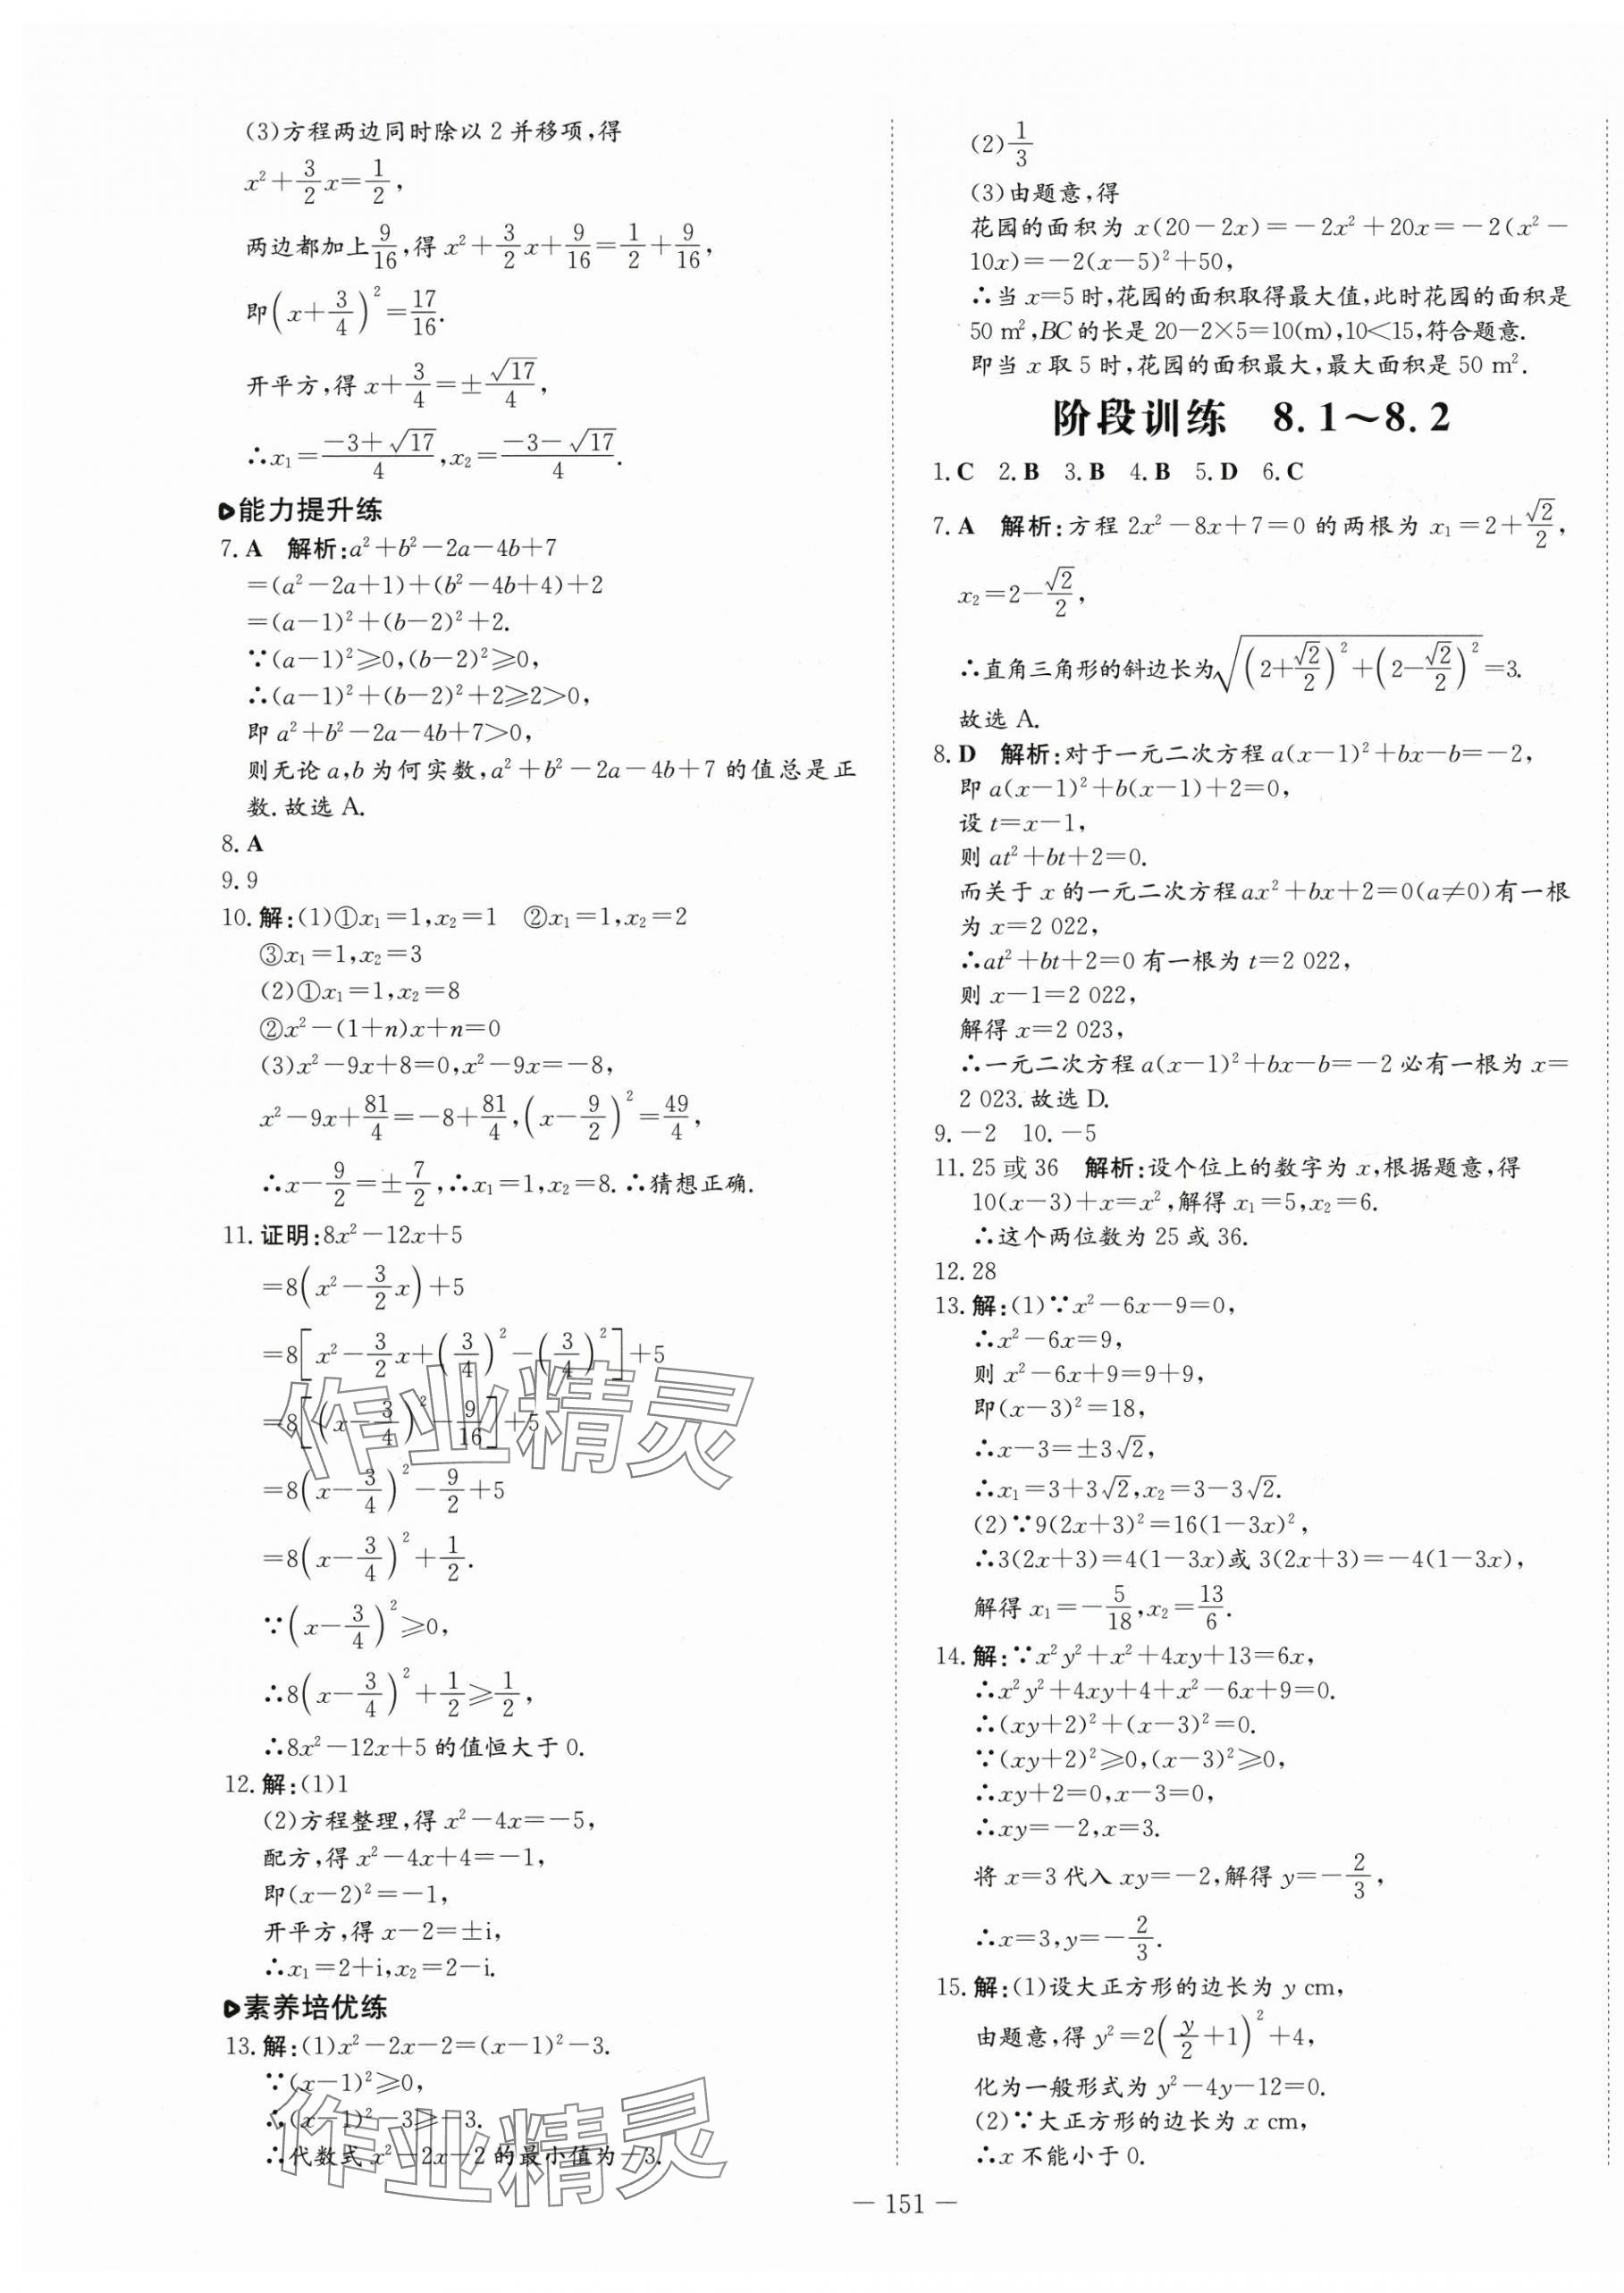 (3)方程两边同时除以2并移项,得
x²+3/2x=1/2,
两边都加上9/16,得x²+3/2x+9/16=1/2+9/16,
即(x+3/4)²=17/16.
开平方,得x+3/4=±√17/4,
∴x₁=(-3+√17)/4,x₂=(-3-√17)/4.
能力提升练
7.A 解析:a²+b²-2a-4b+7
=(a²-2a+1)+(b²-4b+4)+2
=(a-1)²+(b-2)²+2.
∵(a-1)²≥0,(b-2)²≥0,
∴(a-1)²+(b-2)²+2≥2>0,
即a²+b²-2a-4b+7>0,
则无论a,b为何实数,a²+b²-2a-4b+7的值总是正
数.故选A.
8.A
9.9
10.解:(1)①x₁=1,x₂=1 ②x₁=1,x₂=2
③x₁=1,x₂=3
(2)①x₁=1,x₂=8
②x²-(1+n)x+n=0
(3)x²-9x+8=0,x²-9x=-8,
x²-9x+81/4=-8+81/4,(x-9/2)²=49/4,
∴x-9/2=±7/2,∴x₁=1,x₂=8.∴猜想正确.
11.证明:8x²-12x+5
=8(x²-3/2x)+5
=8[x²-3/2x+(3/4)²-(3/4)²]+5
=8[(x-3/4)²-9/16]+5
=8(x-3/4)²-9/2+5
=8(x-3/4)²+1/2.
∵(x-3/4)²≥0,
∴8(x-3/4)²+1/2≥1/2,
∴8x²-12x+5的值恒大于0.
12.解:(1)1
(2)方程整理,得x²-4x=-5,
配方,得x²-4x+4=-1,
即(x-2)²=-1,
开平方,得x-2=±i,
∴x₁=2+i,x₂=2-i.
素养培优练
13.解:(1)x²-2x-2=(x-1)²-3.
∵(x-1)²≥0,
∴(x-1)²-3≥-3.
∴代数式x²-2x-2的最小值为-3.
(2)1/3
(3)由题意,得
花园的面积为x(20-2x)=-2x²+20x=-2(x²-
10x)=-2(x-5)²+50,
∴当x=5时,花园的面积取得最大值,此时花园的面积是
50 m²,BC的长是20-2×5=10(m),10<15,符合题意.
即当x取5时,花园的面积最大,最大面积是50 m².
阶段训练 8.1~8.2
1.C 2.B 3.B 4.B 5.D 6.C
7.A 解析:方程2x²-8x+7=0的两根为x₁=2+√2/2,
x₂=2-√2/2,
∴直角三角形的斜边长为√((2+√2/2)²+(2-√2/2)²)=3.
故选A.
8.D 解析:对于一元二次方程a(x-1)²+bx-b=-2,
即a(x-1)²+b(x-1)+2=0,
设t=x-1,
则at²+bt+2=0.
而关于x的一元二次方程ax²+bx+2=0(a≠0)有一根
为x=2 022,
∴at²+bt+2=0有一根为t=2 022,
则x-1=2 022,
解得x=2 023,
∴一元二次方程a(x-1)²+bx-b=-2必有一根为x=
2 023.故选D.
9.-2 10.-5
11.25或36 解析:设个位上的数字为x,根据题意,得
10(x-3)+x=x²,解得x₁=5,x₂=6.
∴这个两位数为25或36.
12.28
13.解:(1)∵x²-6x-9=0,
∴x²-6x=9,
则x²-6x+9=9+9,
即(x-3)²=18,
∴x-3=±3√2,
∴x₁=3+3√2,x₂=3-3√2.
(2)∵9(2x+3)²=16(1-3x)²,
∴3(2x+3)=4(1-3x)或3(2x+3)=-4(1-3x),
解得x₁=-5/18,x₂=13/6.
14.解:∵x²y²+x²+4xy+13=6x,
∴x²y²+4xy+4+x²-6x+9=0.
∴(xy+2)²+(x-3)²=0.
∵(xy+2)²≥0,(x-3)²≥0,
∴xy+2=0,x-3=0,
∴xy=-2,x=3.
将x=3代入xy=-2,解得y=-2/3,
∴x=3,y=-2/3.
15.解:(1)设大正方形的边长为y cm,
由题意,得y²=2(y/2+1)²+4,
化为一般形式为y²-4y-12=0.
(2)∵大正方形的边长为x cm,
∴x不能小于0.
— 151 —
作业精灵
作业精灵